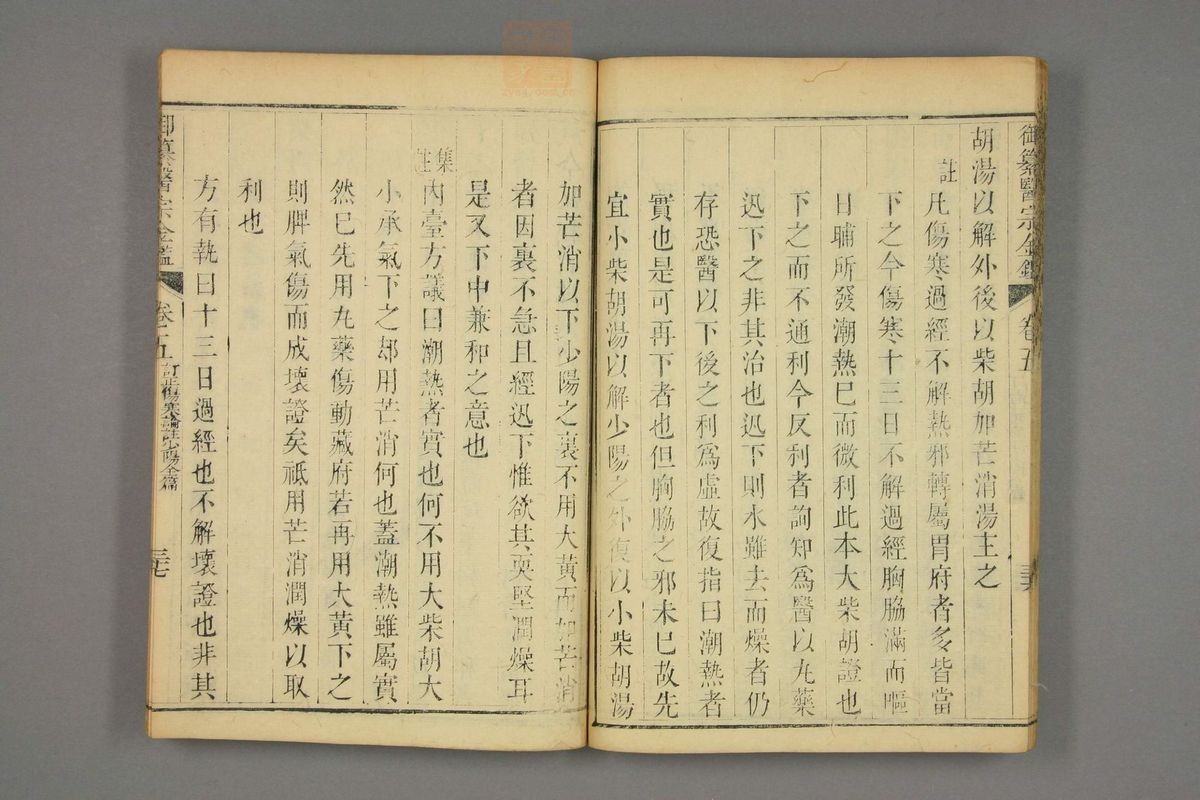 御纂醫宗金鑑 卷五 三六
胡湯以解外後以柴胡加芒消湯主之
註 凡傷寒過經不解熱邪轉屬胃府者多皆當
下之今傷寒十三日不解過經胸脇滿而嘔
日晡所發潮熱巳而微利此本大柴胡證也
下之而不通利今反利者詢知爲醫以丸藥
迅下之非其治也迅下則水雖去而燥者仍
存恐醫以下後之利爲虛故復指曰潮熱者
實也是可再下者也但胸脇之邪未巳故先
宜小柴胡湯以解少陽之外復以小柴胡湯
加芒消以下少陽之裏不用大黃而加芒消
者因裏不急且經迅下惟欲其耎堅潤燥耳
是又下中兼和之意也
集註 內臺方議曰潮熱者實也何不用大柴胡大
小承氣下之却用芒消何也蓋潮熱雖屬實
然巳先用丸藥傷動藏府若再用大黃下之
則脾氣傷而成壞證矣祇用芒消潤燥以取
利也
方有執曰十三日過經也不解壞證也非其
御纂醫宗金鑑 卷五 訂正傷寒論註少陽全篇 三七